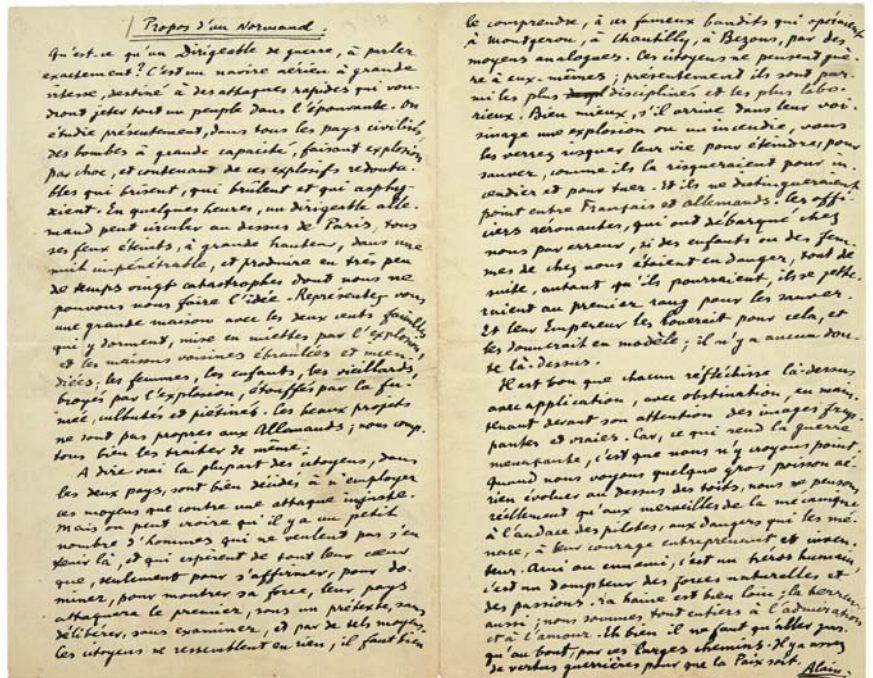 Propos d'un Normand.
Qu'est-ce qu'un Dirigeable de guerre, à parler
exactement? C'est un navire aérien à grande
vitesse, destiné à des attaques rapides qui vou-
dront jeter tout un peuple dans l'épouvante. On
étudie présentement, dans tous les pays civilisés,
des bombes à grande capacité, faisant explosion
par choc, et contenant de ces explosifs redouta-
bles qui brisent, qui brûlent et qui asphy-
xient. En quelques heures, un dirigeable alle-
mand peut circuler au dessus de Paris, tous
ses feux éteints, à grande hauteur, dans une
nuit impénétrable, et produire en très peu
de temps vingt catastrophes dont nous ne
pouvons nous faire l'idée. Représentez-vous
une grande maison avec les deux cents familles
qui y dorment, mise en miettes par l'explosion,
et les maisons voisines ébranlées et incen-
diées; les femmes, les enfants, les vieillards,
broyés par l'explosion, étouffés par la fu-
mée, culbutés et piétinés. Ces beaux projets
ne sont pas propres aux Allemands; nous comp-
tons bien les traiter de même.
A dire vrai la plupart des citoyens, dans
les deux pays, sont bien décidés à n'employer
ces moyens que contre une attaque injuste.
Mais on peut croire qu'il y a un petit
nombre d'hommes qui ne veulent pas s'en
tenir là, et qui espèrent de tout leur cœur
que, seulement pour s'affirmer, pour do-
miner, pour montrer sa force, leur pays
attaquera le premier, sous un prétexte, sans
délibérer, sans examiner, et par de tels moyens.
Ces citoyens ne ressemblent en rien, il faut bien
le comprendre, à ces fameux bandits qui opéraient
à Montgeron, à Chantilly, à Bezons, par des
moyens analogues. Ces citoyens ne pensent guè-
re à eux-mêmes; présentement ils sont par-
mi les plus disciplinés et les plus labo-
rieux. Bien mieux, s'il arrive dans leur voi-
sinage une explosion ou un incendie, vous
les verrez risquer leur vie pour éteindre, pour
sauver, comme ils la risqueraient pour in-
cendier et pour tuer. Et ils ne distingueraient
point entre Français et allemands. Les offi-
ciers aéronautes, qui ont débarqué chez
nous par erreur, si des enfants ou des fem-
mes de chez nous étaient en danger, tout de
suite, autant qu'ils pourraient, ils se jette-
raient au premier rang pour les sauver.
Et leur Empereur les louerait pour cela, et
les donnerait en modèle; il n'y a aucun dou-
te là-dessus.
Il est bon que chacun réfléchisse là-dessus
avec application, avec obstination, en main-
tenant devant son attention des images frap-
pantes et vraies. Car, ce qui rend la guerre
menaçante, c'est que nous n'y croyons point.
Quand nous voyons quelque gros poisson aé-
rien évoluer au dessus des toits, nous ne pensons
réellement qu'aux merveilles de la mécanique
à l'audace des pilotes, aux dangers qui les me-
nace, à leur courage entreprenant et inven-
teur. Ami ou ennemi, c'est un héros humain,
c'est un dompteur des forces naturelles et
des passions. La haine est bien loin; la terreur
aussi; nous sommes tout entiers à l'admiration
et à l'amour. Eh bien il ne faut qu'aller jus-
qu'au bout, par ces larges chemins. Il y a assez
de vertus guerrières pour que la Paix soit.
Alain.